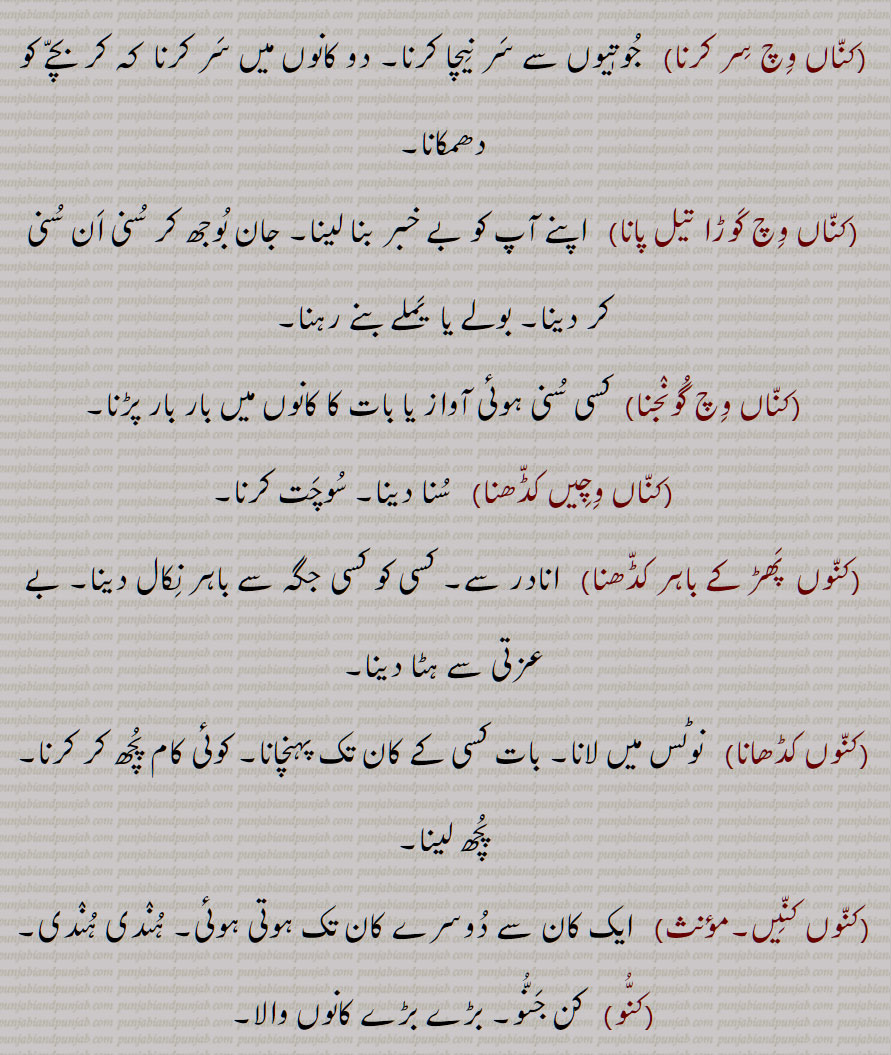 (کنّاں وِچ سِر کرنا) جُوتیوں سے سَر نِیچا کرنا۔ دو کانوں میں سَر کرنا کہ کر بچّے کو
دھمکانا۔
(کنّاں وِچ کَوڑا تیل پانا) اپنے آپ کو بے خبر بنا لینا۔ جان بُوجھ کر سُنی اَن سُنی
کر دینا۔ بولے یا یَملے بنے رہنا۔
(کنّاں وِچ گُون٘جنا) کسی سُنی ہوئی آواز یا بات کا کانوں میں بار بار پڑنا۔
(کنّاں وِچِیں کڈّھنا) سُنا دینا۔ سُوچَت کرنا۔
(کنّوں پَھڑ کے باہر کڈّھنا) انادر سے۔ کسی کو کسی جگہ سے باہر نِکال دینا۔ بے
عزتی سے ہٹا دینا۔
(کنّوں کڈھانا) نوٹس میں لانا۔ بات کسی کے کان تک پہنچانا۔ کوئی کام پُچھ کر کرنا۔
پُچھ لینا۔
(کنّوں کنّیِں۔مؤنث) ایک کان سے دُوسرے کان تک ہوتی ہوئی۔ ہُن٘دی ہُن٘دی۔
(کنُّو) کن جَنُّو۔ بڑے بڑے کانوں والا۔
punjabiandpunjab com